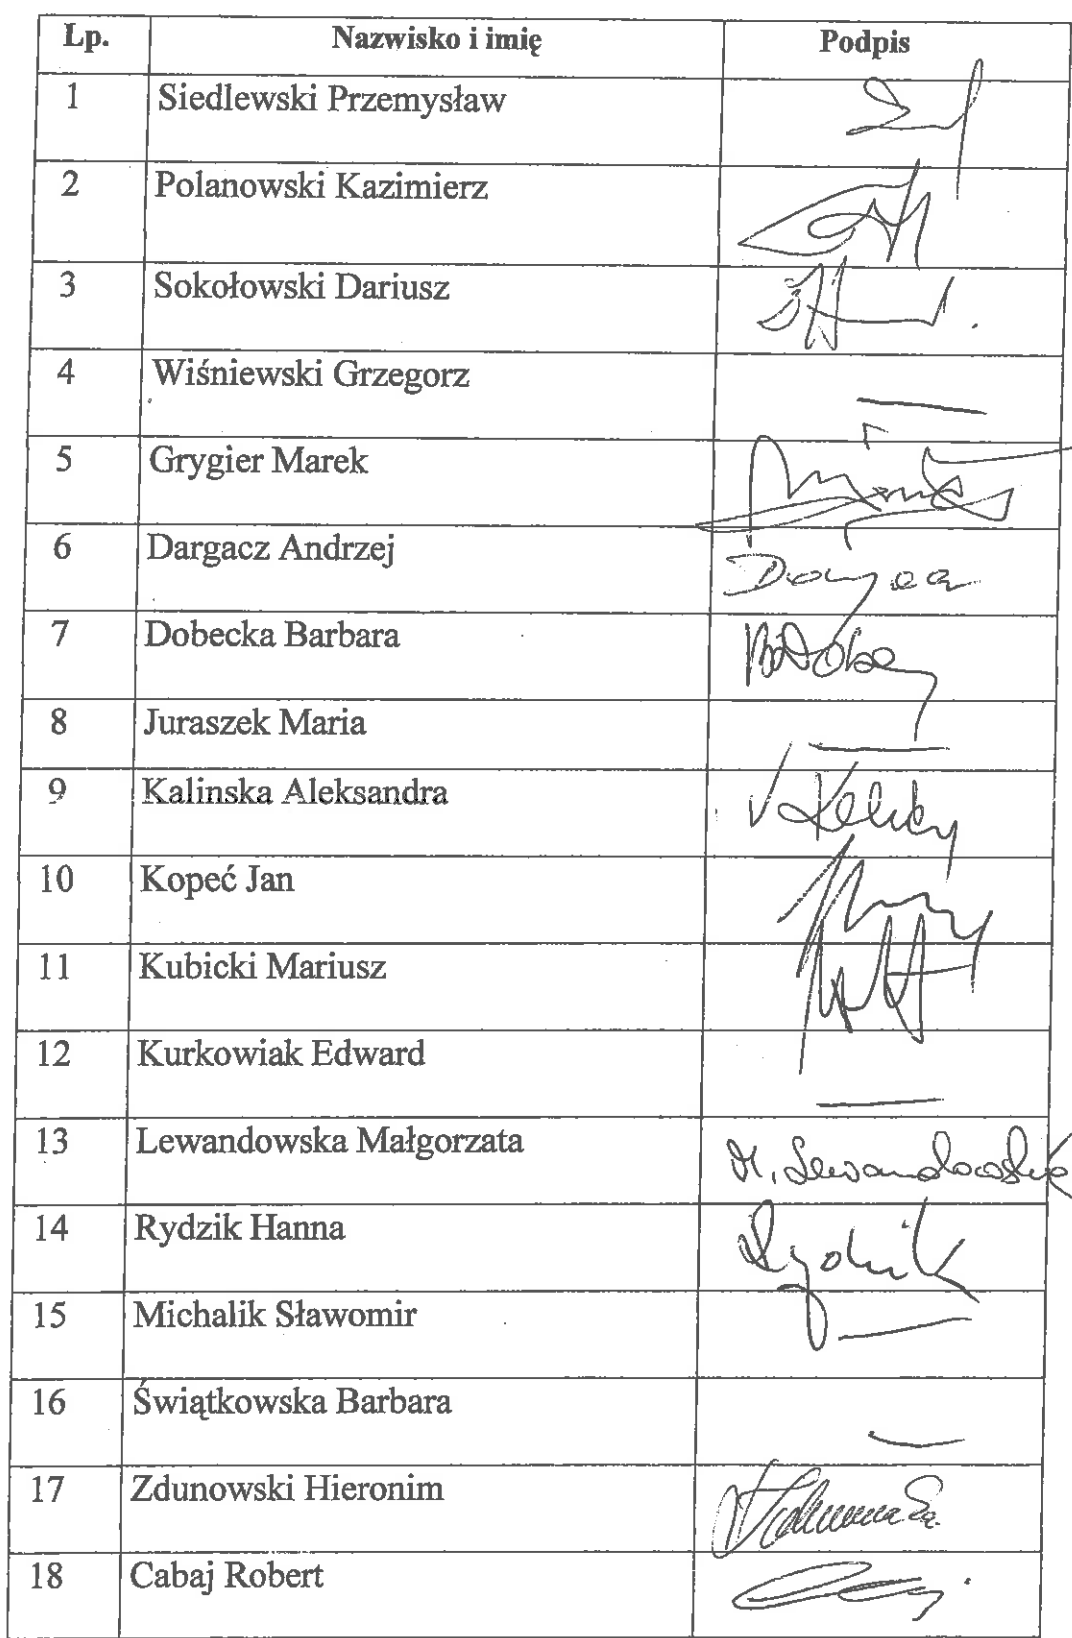 Lp. Nazwisko i imię Podpis
1 Siedlewski Przemysław
2 Polanowski Kazimierz
3 Sokołowski Dariusz
4 Wiśniewski Grzegorz —
5 Grygier Marek
6 Dargacz Andrzej
7 Dobecka Barbara
8 Juraszek Maria —
9 Kalinska Aleksandra
10 Kopeć Jan
11 Kubicki Mariusz
12 Kurkowiak Edward —
13 Lewandowska Małgorzata M. Lewandowska
14 Rydzik Hanna Rydzik
15 Michalik Sławomir —
16 Świątkowska Barbara —
17 Zdunowski Hieronim
18 Cabaj Robert